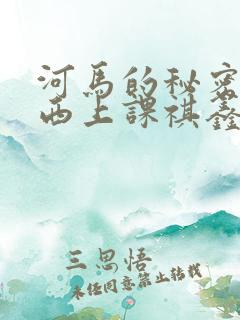 河馬的秘密
西上課祺鑫
三思悟
未经同意禁止转载